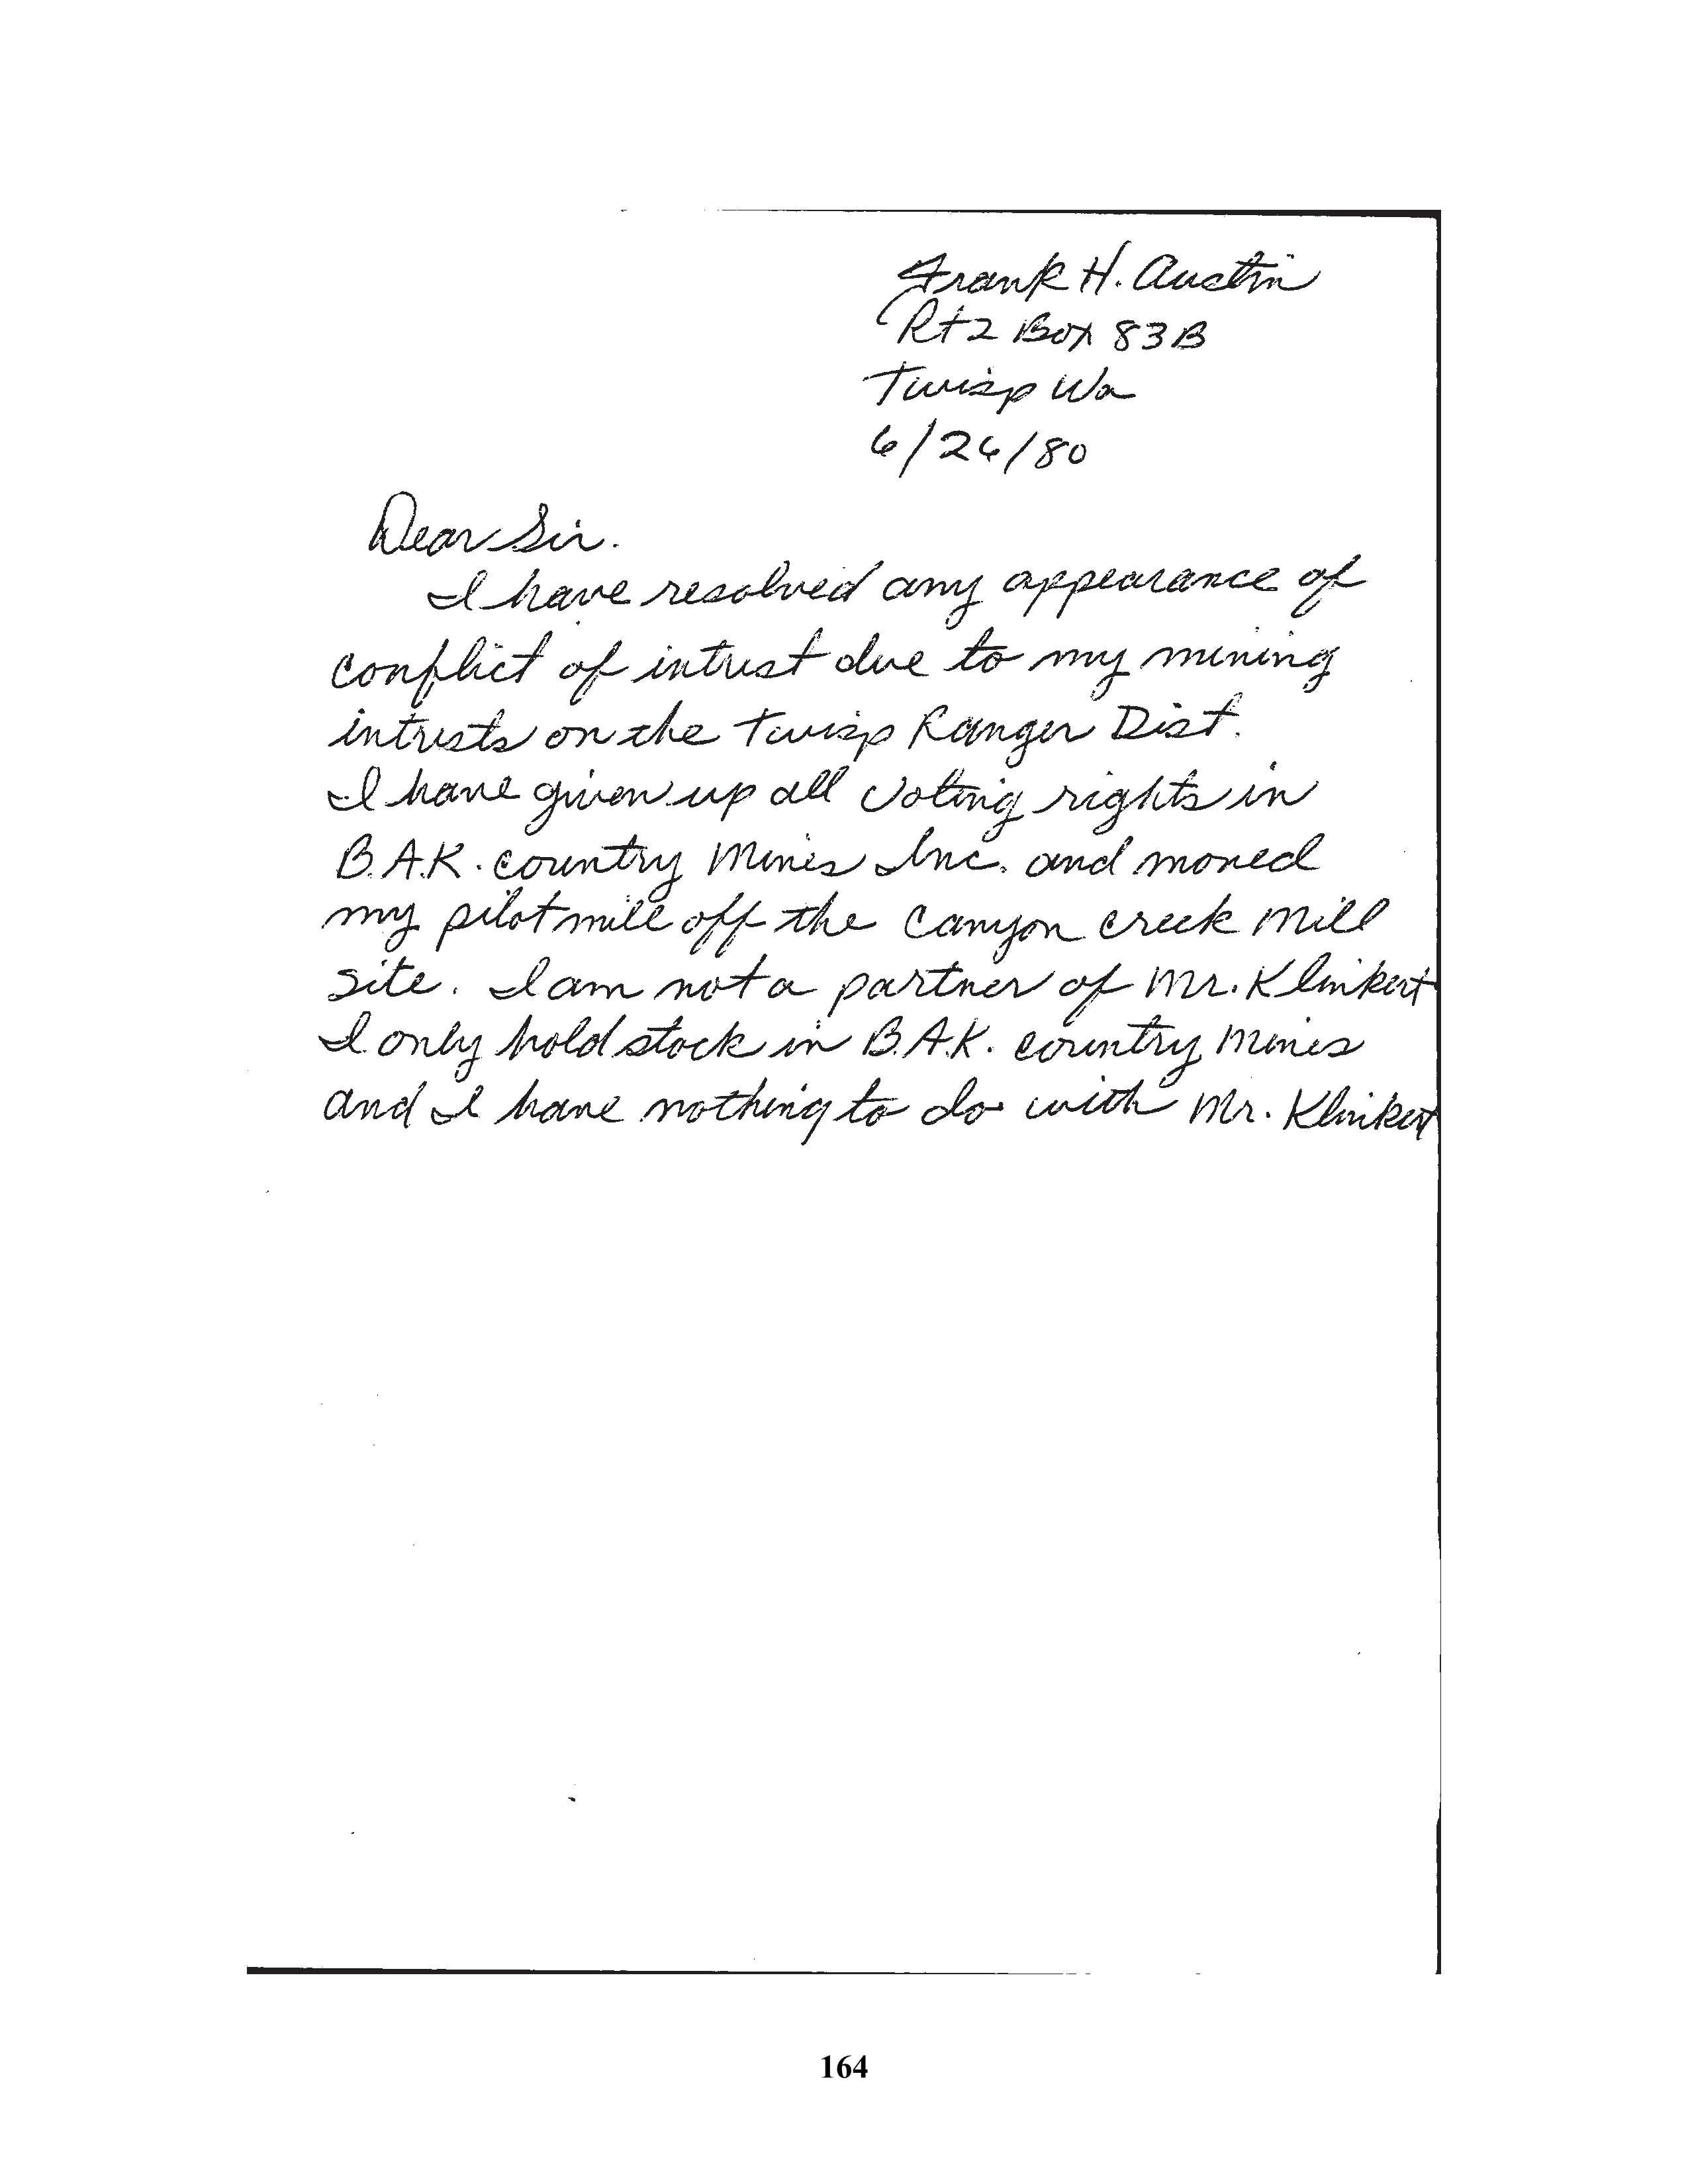 Frank H. Austin
Rt 2 Box 83B
Twisp Wa
6/26/80
Dear Sir.
I have resolved any appearance of
conflict of intrust due to my mining
intrusts on the Twisp Ranger Dist.
I have given up all voting rights in
B.A.K. country Mines Inc. and moved
my pilot mill off the Canyon Creek Mill
site. I am not a partner of Mr. Klinkert
I only hold stock in B.A.K. country Mines
and I have nothing to do with Mr. Klinkert
164